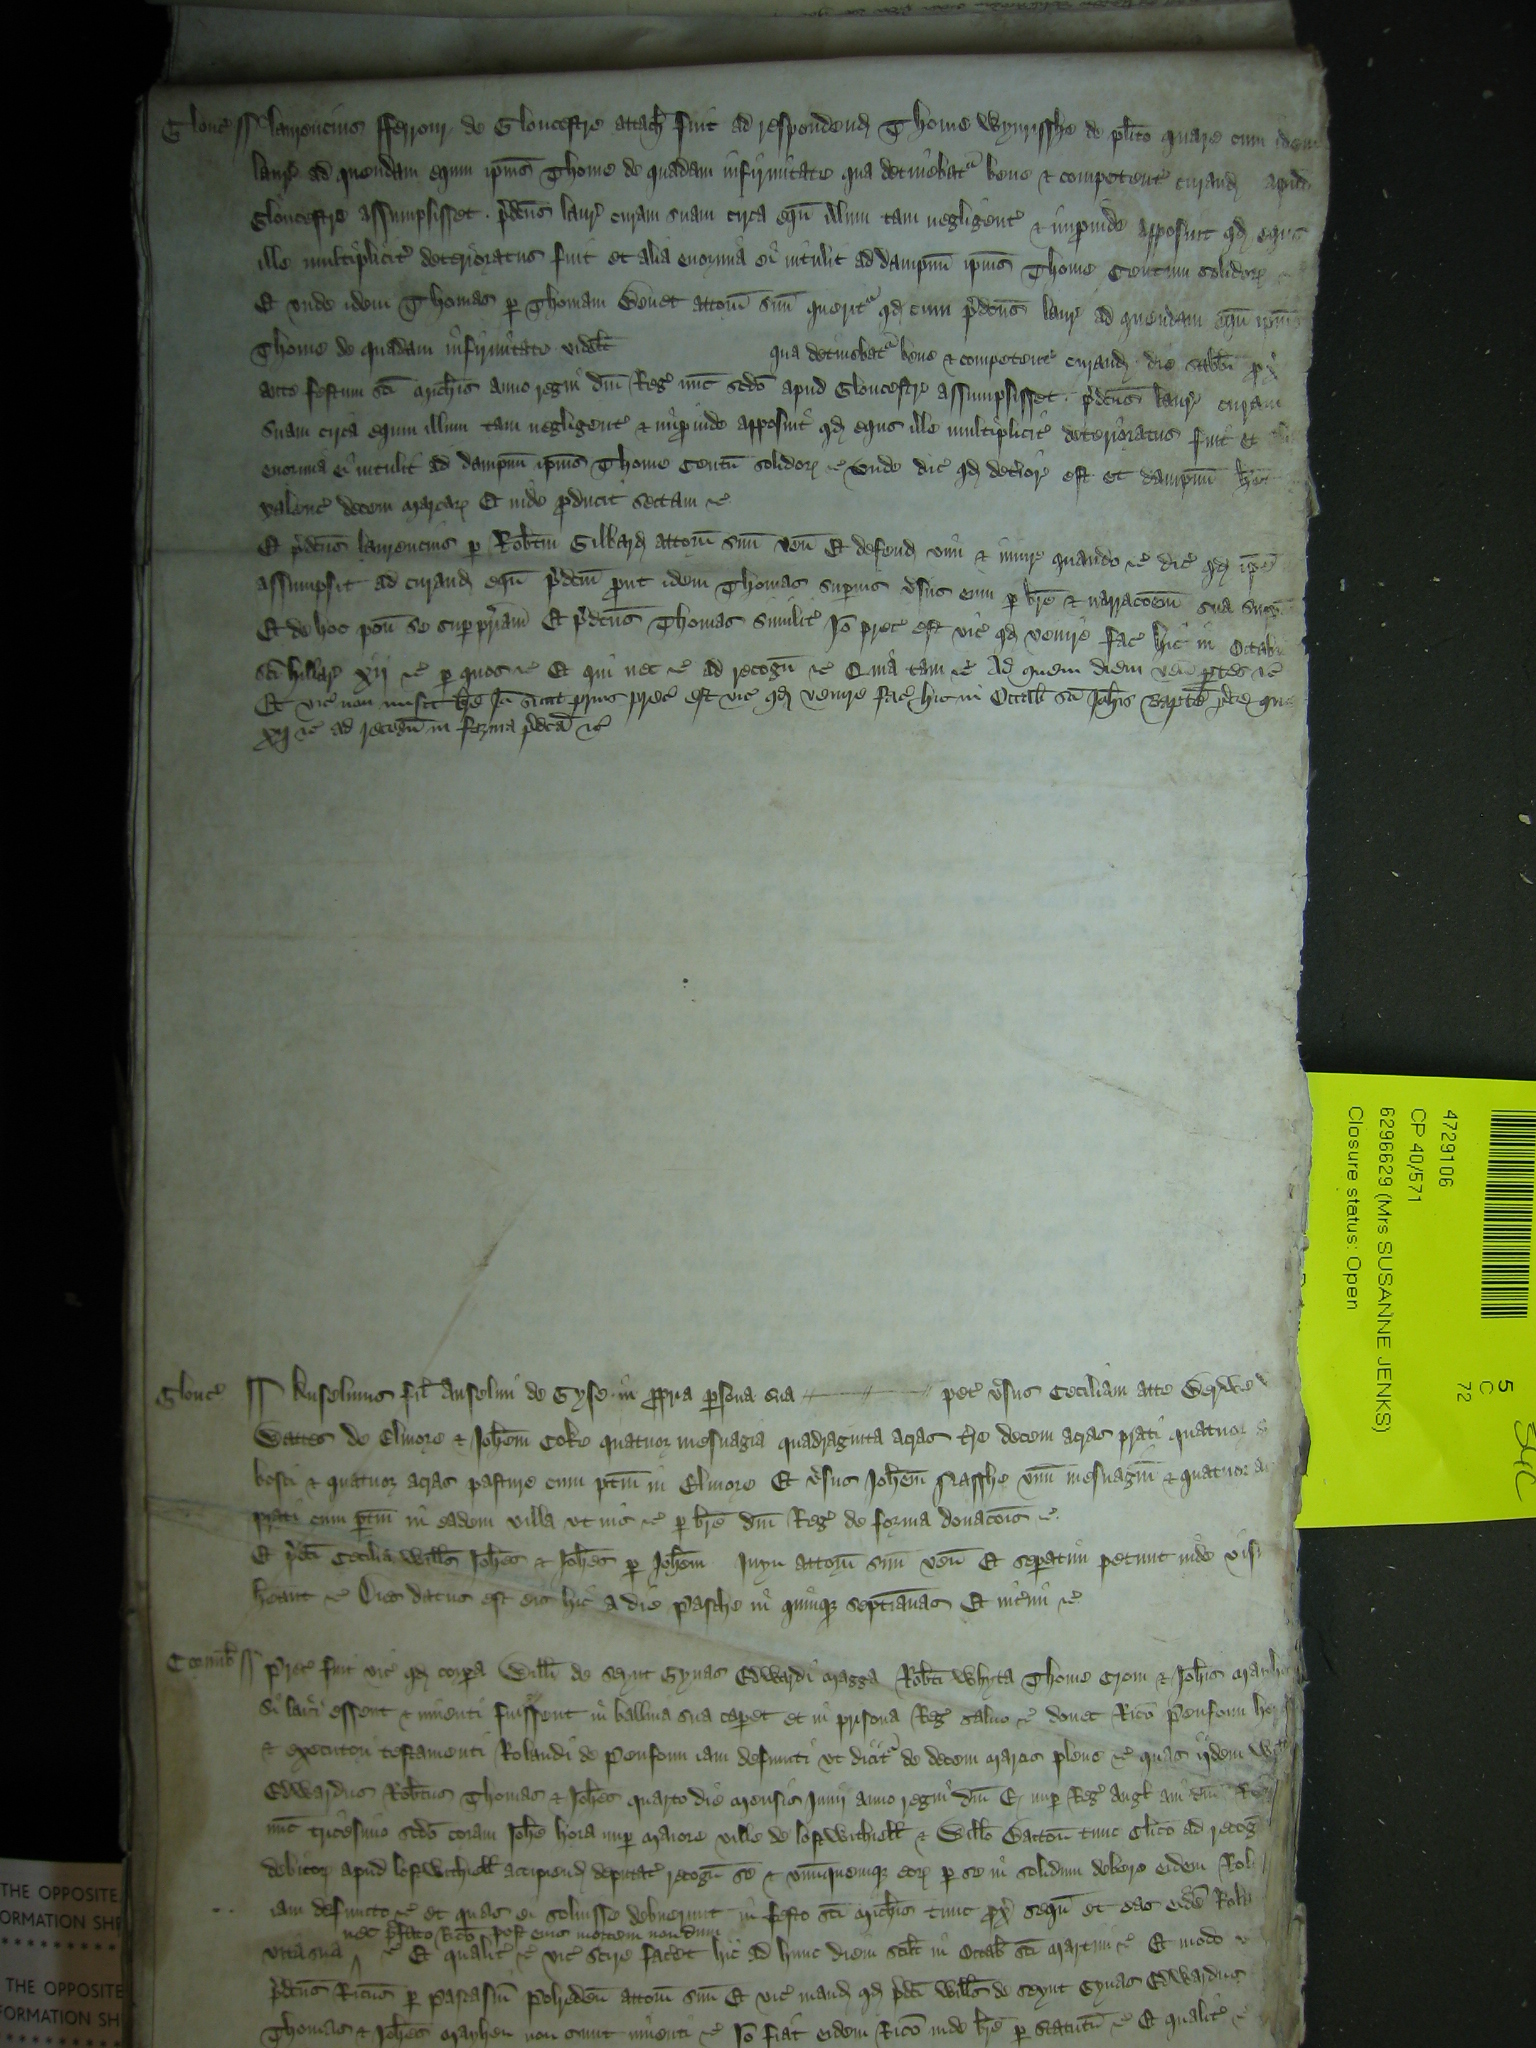 Glouc' Laurencius fferrour de Gloucestre attach' fuit ad respondend' Thome Wynrisshe de pl'ito quare cum idem
laur' ad quendam equm ip'ius Thome de quadam infirmitate qua detinebat' bene & competent' curand' apud
Gloucestre assumpsisset . p'dc'us laur' curam suam circa equ' illum tam negligent' & inp'uide apposuit q'd equs
ille multiplicit' deterioratus fuit et alia enormia ei intulit ad dampnu' ip'ius Thome Centum solidor' &c'
Et vnde idem Thomas p' Thomam attorn' suu' querit' q'd cum p'dc'us laur' ad quendam equ' ip'ius
Thome de quadam infirmitate videl't qua detinebat' bene & competent' curand' die sabb'i p'x'
ante festum s'ci Mich'is anno regni d'ni Reg' nu'c sc'do apud Gloucestre assumpsisset . p'dc'us laur' curam
suam circa equm illum tam negligent' & inp'uide apposuit q'd equs ille multiplicit' deterioratus fuit et
enormia ei intulit ad dampnu' ip'ius Thome Centu' solidor' &c' Vnde dic' q'd det'ior' est et dampnu' h'et
valenc' decem marcar' Et inde p'ducit sectam &c'
Et p'dc'us laurencius p' Rob'tm Gilbard attorn' suu' ven' Et defend' vim & iniur' quando &c' dic' q'd ip'e
assumpsit ad curand' equ' p'dc'm p'ut idem Thomas sup'ius v'sus eum p' br'e & narrac'o'em sua
Et de hoc pon' se sup' p'riam Et p'dc'us Thomas similit' Io' prec' est vic' q'd venire fac' hic in Octabis
s'ci hillar' xij &c' p' quos &c' Et qui nec &c' ad recogn' &c' Quia tam &c' Ad quem diem ven' p'tes &c'
Et vic' non misit br'e Io' sicut prius prec' est vic' q'd venire fac' hic in Octab' s'ci Joh'is Bapt'e
xij &c' ad recogn' in forma p'dc'a &c'
Glouc' Anselmus fil' Anselmi de Gyse in p'pria p'sona sua pet' v'sus Ceciliam atte
de Elmore & Joh'em Coke quatuor mesuagia quadraginta acras t're decem acras prati quatuor
bosci & quatuor acras pasture cum p'tin' in Elmore Et v'sus Joh'em Nasshe vnu' mesuagiu' & quatuor
prati cum p'tin' in eadem villa vt ius &c' p' br'e d'ni Reg' de forma donac'o'is &c'
Et p'dc'i Cecilia Will's Joh'es & Joh'es p' Joh'em attorn' suu' ven' Et sep'atim petunt inde visu'
h'eant &c' Dies datus est eis hic a die Pasche in quinq' septi'anas Et int'im &c'
Cornub' Prec' fuit vic' q'd corp'a Will'i de Seynt Edwardi Magga Rob'ti Whyta Thome Crom & Joh'is
si laici essent & inuenti fuissent in balliua sua cap'et et in prisona Reg' saluo &c' donec Ric'o Penfoun
& executori testamenti Rolandi de Penfoun iam defuncti vt dicit' de decem marcis plene &c' quas ijdem
Edwardus Rob'tus Thomas & Joh'es quarto die mensis Junij anno regni d'ni E nup' Reg' Angl' aui d'ni
nu'c tricesimo sc'do coram Joh'e hora nup' Maiore ville de lostwithiell' & Will'o tunc cl'ico ad recog'
debitor' apud lostwithiell' accipiend' deputat' recogn' se & vnu'quemq' eor' p' se in solidum debere eidem Rol
iam defuncto &c' et quas ei soluisse debuerunt in festo s'ci Mich'is tunc p'x' sequ' et eas eid'm
nec p'fato Ric'o post eius mortem nondum
vita sua &c' Et qualit' &c' vic' scire fac'et hic ad hunc diem scil't in Octab' s'ci Martini &c' Et modo
p'dc'us Ric'us p' Pascasiu' attorn' suu' Et vic' mand' q'd p'dc'i Will's de Seynt Edwardus
Thomas & Joh'es non sunt inuenti &c' Io' fiat eidem Ric'o inde br'e p' statutu' &c' Et qualit' &c'
4729106
CP 40/571
6296629 (Mrs SUSANNE JENKS)
Closure status: Open
5
C
72
THE OPPOSITE
THE OPPOSITE